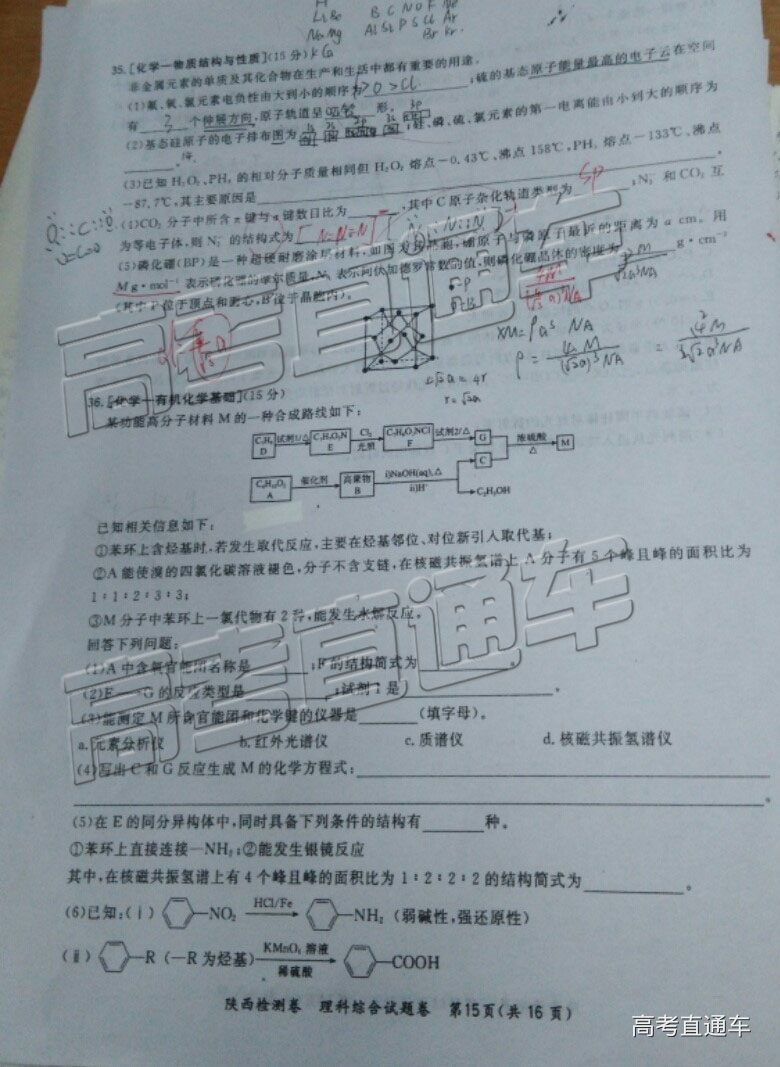 35.[化学—物质结构与性质](15分)
非金属元素的单质及其化合物在生产和生活中都有重要的用途。
(1)氟、氧、氯元素电负性由大到小的顺序为 F>O>Cl ;硫的基态原子能量最高的电子云在空间
有 3 个伸展方向,原子轨道呈 哑铃 形。
(2)基态硅原子的电子排布图为 ;硅、磷、硫、氯元素的第一电离能由小到大的顺序为
(3)已知H₂O₂、PH₃的相对分子质量相同但H₂O₂熔点-0.43℃、沸点158℃,PH₃熔点-133℃、沸点
-87.7℃,其主要原因是
(4)CO₂分子中所含π键与σ键数目比为 ,其中C原子杂化轨道类型为 sp ;N₃⁻和CO₂互
为等电子体,则N₃⁻的结构式为
(5)磷化硼(BP)是一种超硬耐磨涂层材料,如图为其晶胞,硼原子与磷原子最近的距离为a cm。用
M g·mol⁻¹表示磷化硼的摩尔质量,Nₐ表示阿伏加德罗常数的值,则磷化硼晶体的密度为 g·cm⁻³
(其中P位于顶点和面心,B位于晶胞内)。
36.[化学—有机化学基础](15分)
某功能高分子材料M的一种合成路线如下:
D 试剂1/△ E Cl₂ 光照 F 试剂2/△ G 浓硫酸 △ M
A 催化剂 高聚物 B i)NaOH(aq),△ ii)H⁺ C C₂H₅OH
已知相关信息如下:
①苯环上含烃基时,若发生取代反应,主要在烃基邻位、对位新引入取代基;
②A能使溴的四氯化碳溶液褪色,分子不含支链,在核磁共振氢谱上A分子有5个峰且峰的面积比为
1∶1∶2∶3∶3;
③M分子中苯环上一氯代物有2种,能发生水解反应。
回答下列问题:
(1)A中含氧官能团名称是 ;F的结构简式为 。
(2)E→G的反应类型是 ;试剂1是 。
(3)能测定M所含官能团和化学键的仪器是 (填字母)。
a.元素分析仪 b.红外光谱仪 c.质谱仪 d.核磁共振氢谱仪
(4)写出C和G反应生成M的化学方程式:
。
(5)在E的同分异构体中,同时具备下列条件的结构有 种。
①苯环上直接连接—NH₂;②能发生银镜反应
其中,在核磁共振氢谱上有4个峰且峰的面积比为1∶2∶2∶2的结构简式为 。
(6)已知:(ⅰ) —NO₂ HCl/Fe —NH₂ (弱碱性,强还原性)
(ⅱ) —R (—R为烃基) KMnO₄溶液 稀硫酸 —COOH
陕西检测卷 理科综合试题卷 第15页(共16页)
高考直通车